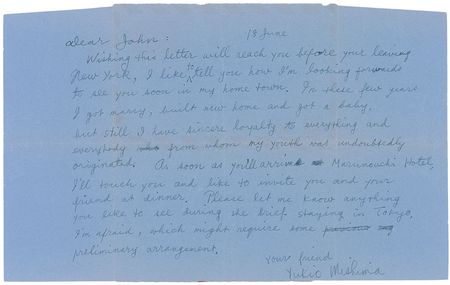 Dear John: 18 June
Wishing this letter will reach you before your leaving
New York, I like to tell you how I'm looking forwards
to see you soon in my home town. In these few years
I got marry, built new home and got a baby.
but still I have sincere loyalty to everything and
everybody from whom my youth was undoubtedly
originated. As soon as you'll arrive at Marunouchi Hotel,
I'll touch you and like to invite you and your
friend at dinner. Please let me know anything
you like to see during the brief staying in Tokyo,
I'm afraid, which might require some
preliminary arrangement.
Your friend
Yukio Mishima